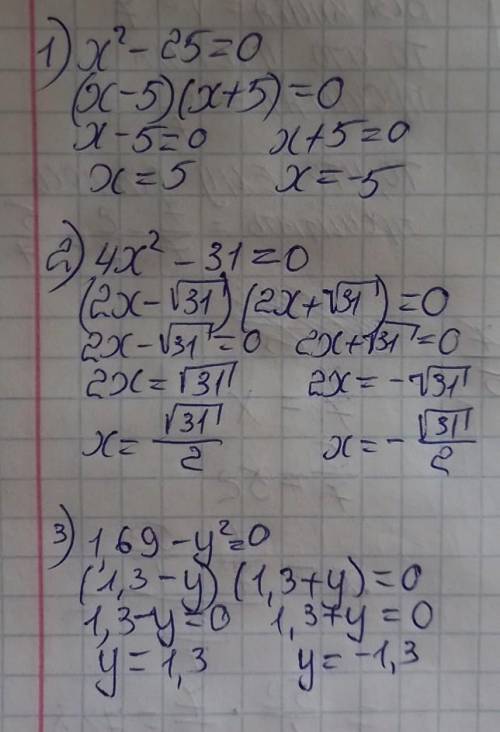 1) x² - 25 = 0
(x - 5)(x + 5) = 0
x - 5 = 0 x + 5 = 0
x = 5 x = -5
2) 4x² - 31 = 0
(2x - √31)(2x + √31) = 0
2x - √31 = 0 2x + √31 = 0
2x = √31 2x = -√31
x = √31/2 x = - √31/2
3) 1,69 - y² = 0
(1,3 - y)(1,3 + y) = 0
1,3 - y = 0 1,3 + y = 0
y = 1,3 y = -1,3